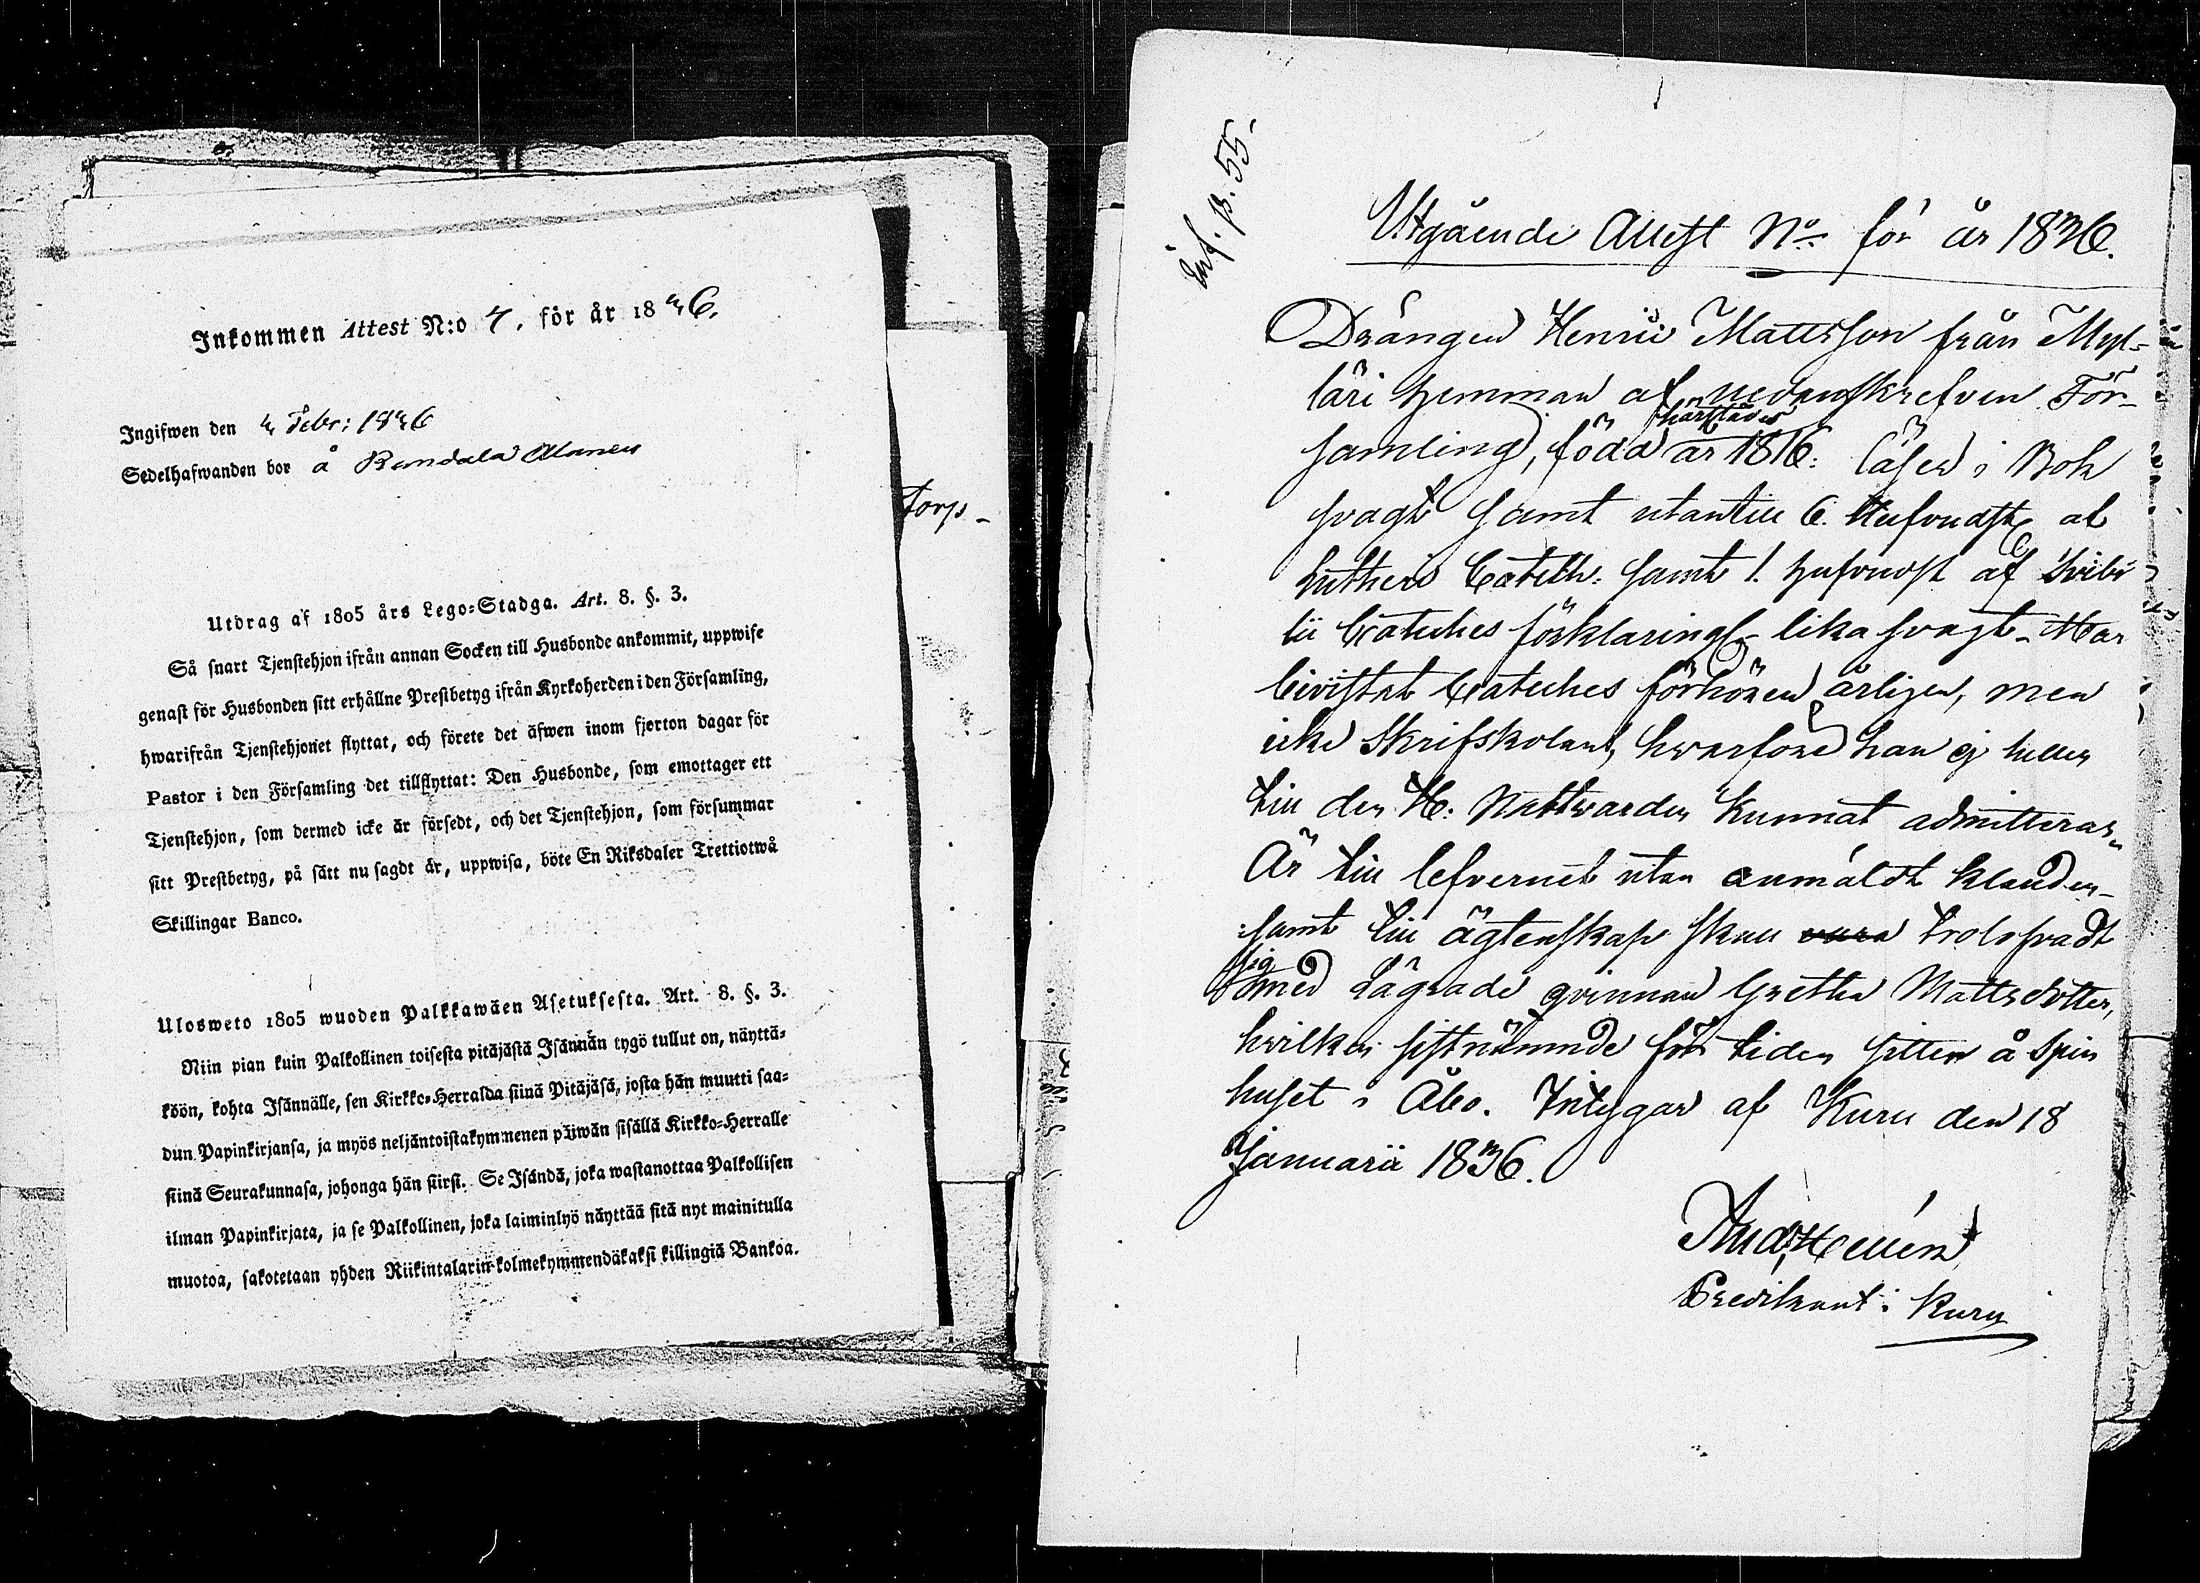 Inkommen Attest N:o 7. för år 1836.
Ingifwen den 4 Febr: 1836
Sedelhafwanden bor å
Utdrag af 1805 års Lego=Stadga. Art. 8. §. 3.
Så snart Tjenstehjon ifrån annan Socken till Husbonde ankommit, uppwise
genast för Husbonden sitt erhållne Prestbetyg ifrån Kyrkoherden i den Församling,
hwarifrån Tjenstehjonet flyttat, och förete det äfwen inom fjorton dagar för
Pastor i den Församling det tillflyttat: Den Husbonde, som emottager ett
Tjenstehjon, som dermed icke är försedt, och det Tjenstehjon, som försummar
sitt Prestbetyg, på sätt nu sagdt är, uppwisa, böte En Riksdaler Trettiotwå
Skillingar Banco.
Ulosweto 1805 wuoden Palkkawäen Asetuksesta. Art. 8. §. 3.
Niin pian kuin Palkollinen toisesta pitäjästä Isännän tygö tullut on, näyttä=
köön, kohta Isännälle, sen Kirkko=Herralda siinä Pitäjäsä, josta hän muutti saa=
dun Papinkirjansa, ja myös neljäntoistakymmenen päiwän sisällä Kirkko=Herralle
siinä Seurakunnasa, johonga hän siirsi. Se Isändä, joka wastanottaa Palkollisen
ilman Papinkirjata, ja se Palkollinen, joka laiminlyö näyttää sitä nyt mainitulla
muotoa, sakotetaan yhden Riikintalarin kolmekymmendäkaksi killingiä Bankoa.
torp-
Inf. p. 55.
Utgående Attest No för år 1836.
Drängen Henric Mattsson från Myl-
läri hemman af nedanskrefven För-
samling, född härstädes år 1816: läser i Bok
svagt samt utantill 6. Hufvudst af
Lutheri Cateth. samt 1. hufvudst af Svibi-
lii Cateches förklaring lika svagt - Har
bivistat Cateches förhören årligen, men
icke Skrifskolant, hvarföre han ej heller
till den H: Nattvarden kunnat admitteras,
Är till lefvernet utan anmäldt klander -
samt till ägtenskap skall vara trolofvadt
sig med Lägrade qvinnan Gretha Mattsdotter,
hvilken sistnämnde för tiden sitter å Spin
huset i Åbo. Intygar af Kuru den 18
Januarii 1836.
And. Hellén
Predikant i Kuru